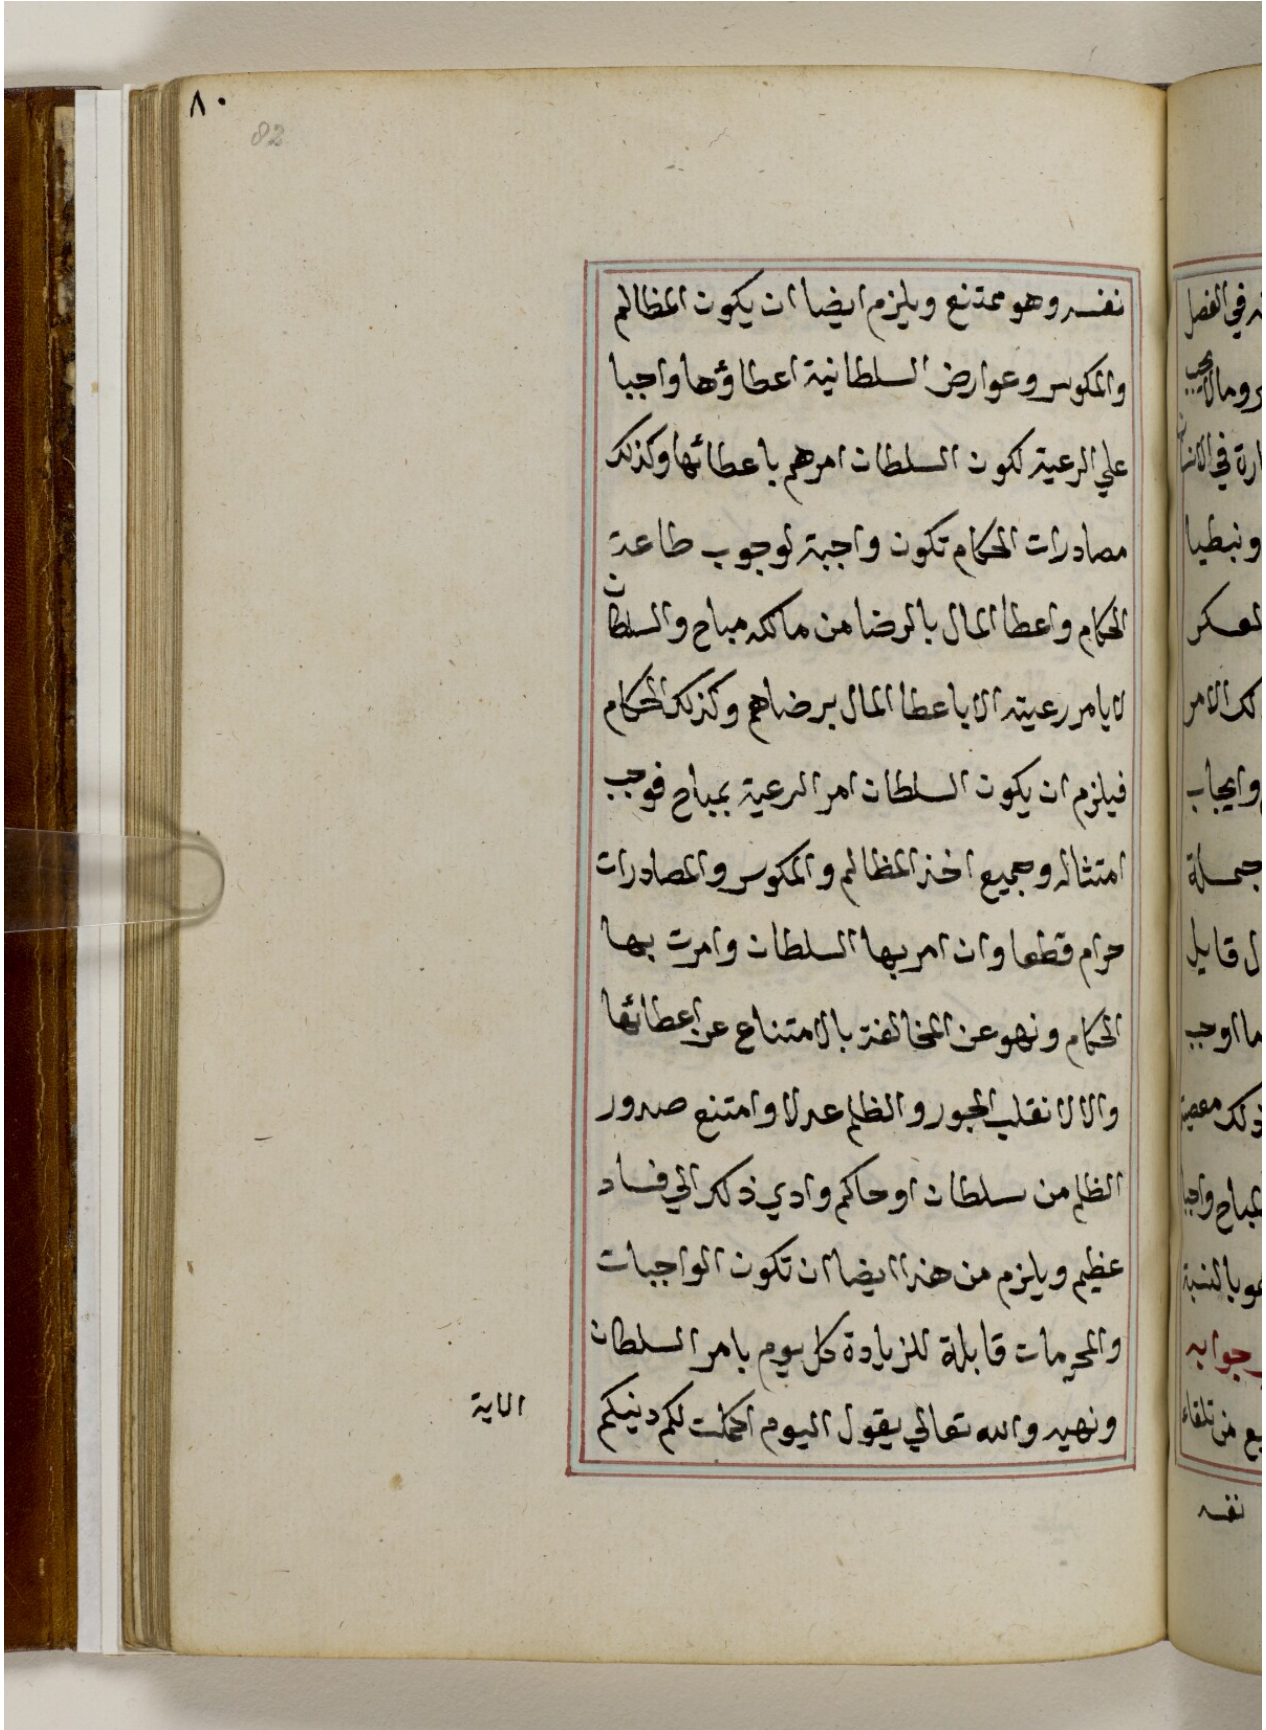 ٨٠
82
نفسه وهو ممتنع ويلزم ايضا ان يكون المظالم
والمكوس وعوارض السلطانية اعطاؤها واجبا
علي الرعية لكون السلطان امرهم باعطائها وكذلك
مصادرات الحكام تكون واجبة لوجوب طاعة
الحكام واعطا المال بالرضا من مالكه مباح والسلطان
لا يامر رعيته الا باعطا المال برضاهم وكذلك الحكام
فيلزم ان يكون السلطان امر الرعية بمباح فوجب
امتثاله وجميع اخذ المظالم والمكوس والمصادرات
حرام قطعا وان امر بها السلطان وامرت بها
الحكام ونهو عن المخالفة بالامتناع عن اعطائها
والا لانقلب الجور والظلم عدلا وامتنع صدور
الظلم من سلطان او حاكم وادي ذلك الي فساد
عظيم ويلزم من هذا ايضا ان تكون الواجبات
والمحرمات قابلة للزيادة كل يوم بامر السلطان
ونهيه والله تعالي يقول اليوم اكملت لكم دينكم
الاية
ه في الفصل
ونبطيا
العسكر
لك الامر
وايجاب
جملة
قايل
ما اوجب
ذلك معصية
المباح واجبا
هو بالنسبة
جوابه
من تلقاء
نفسه